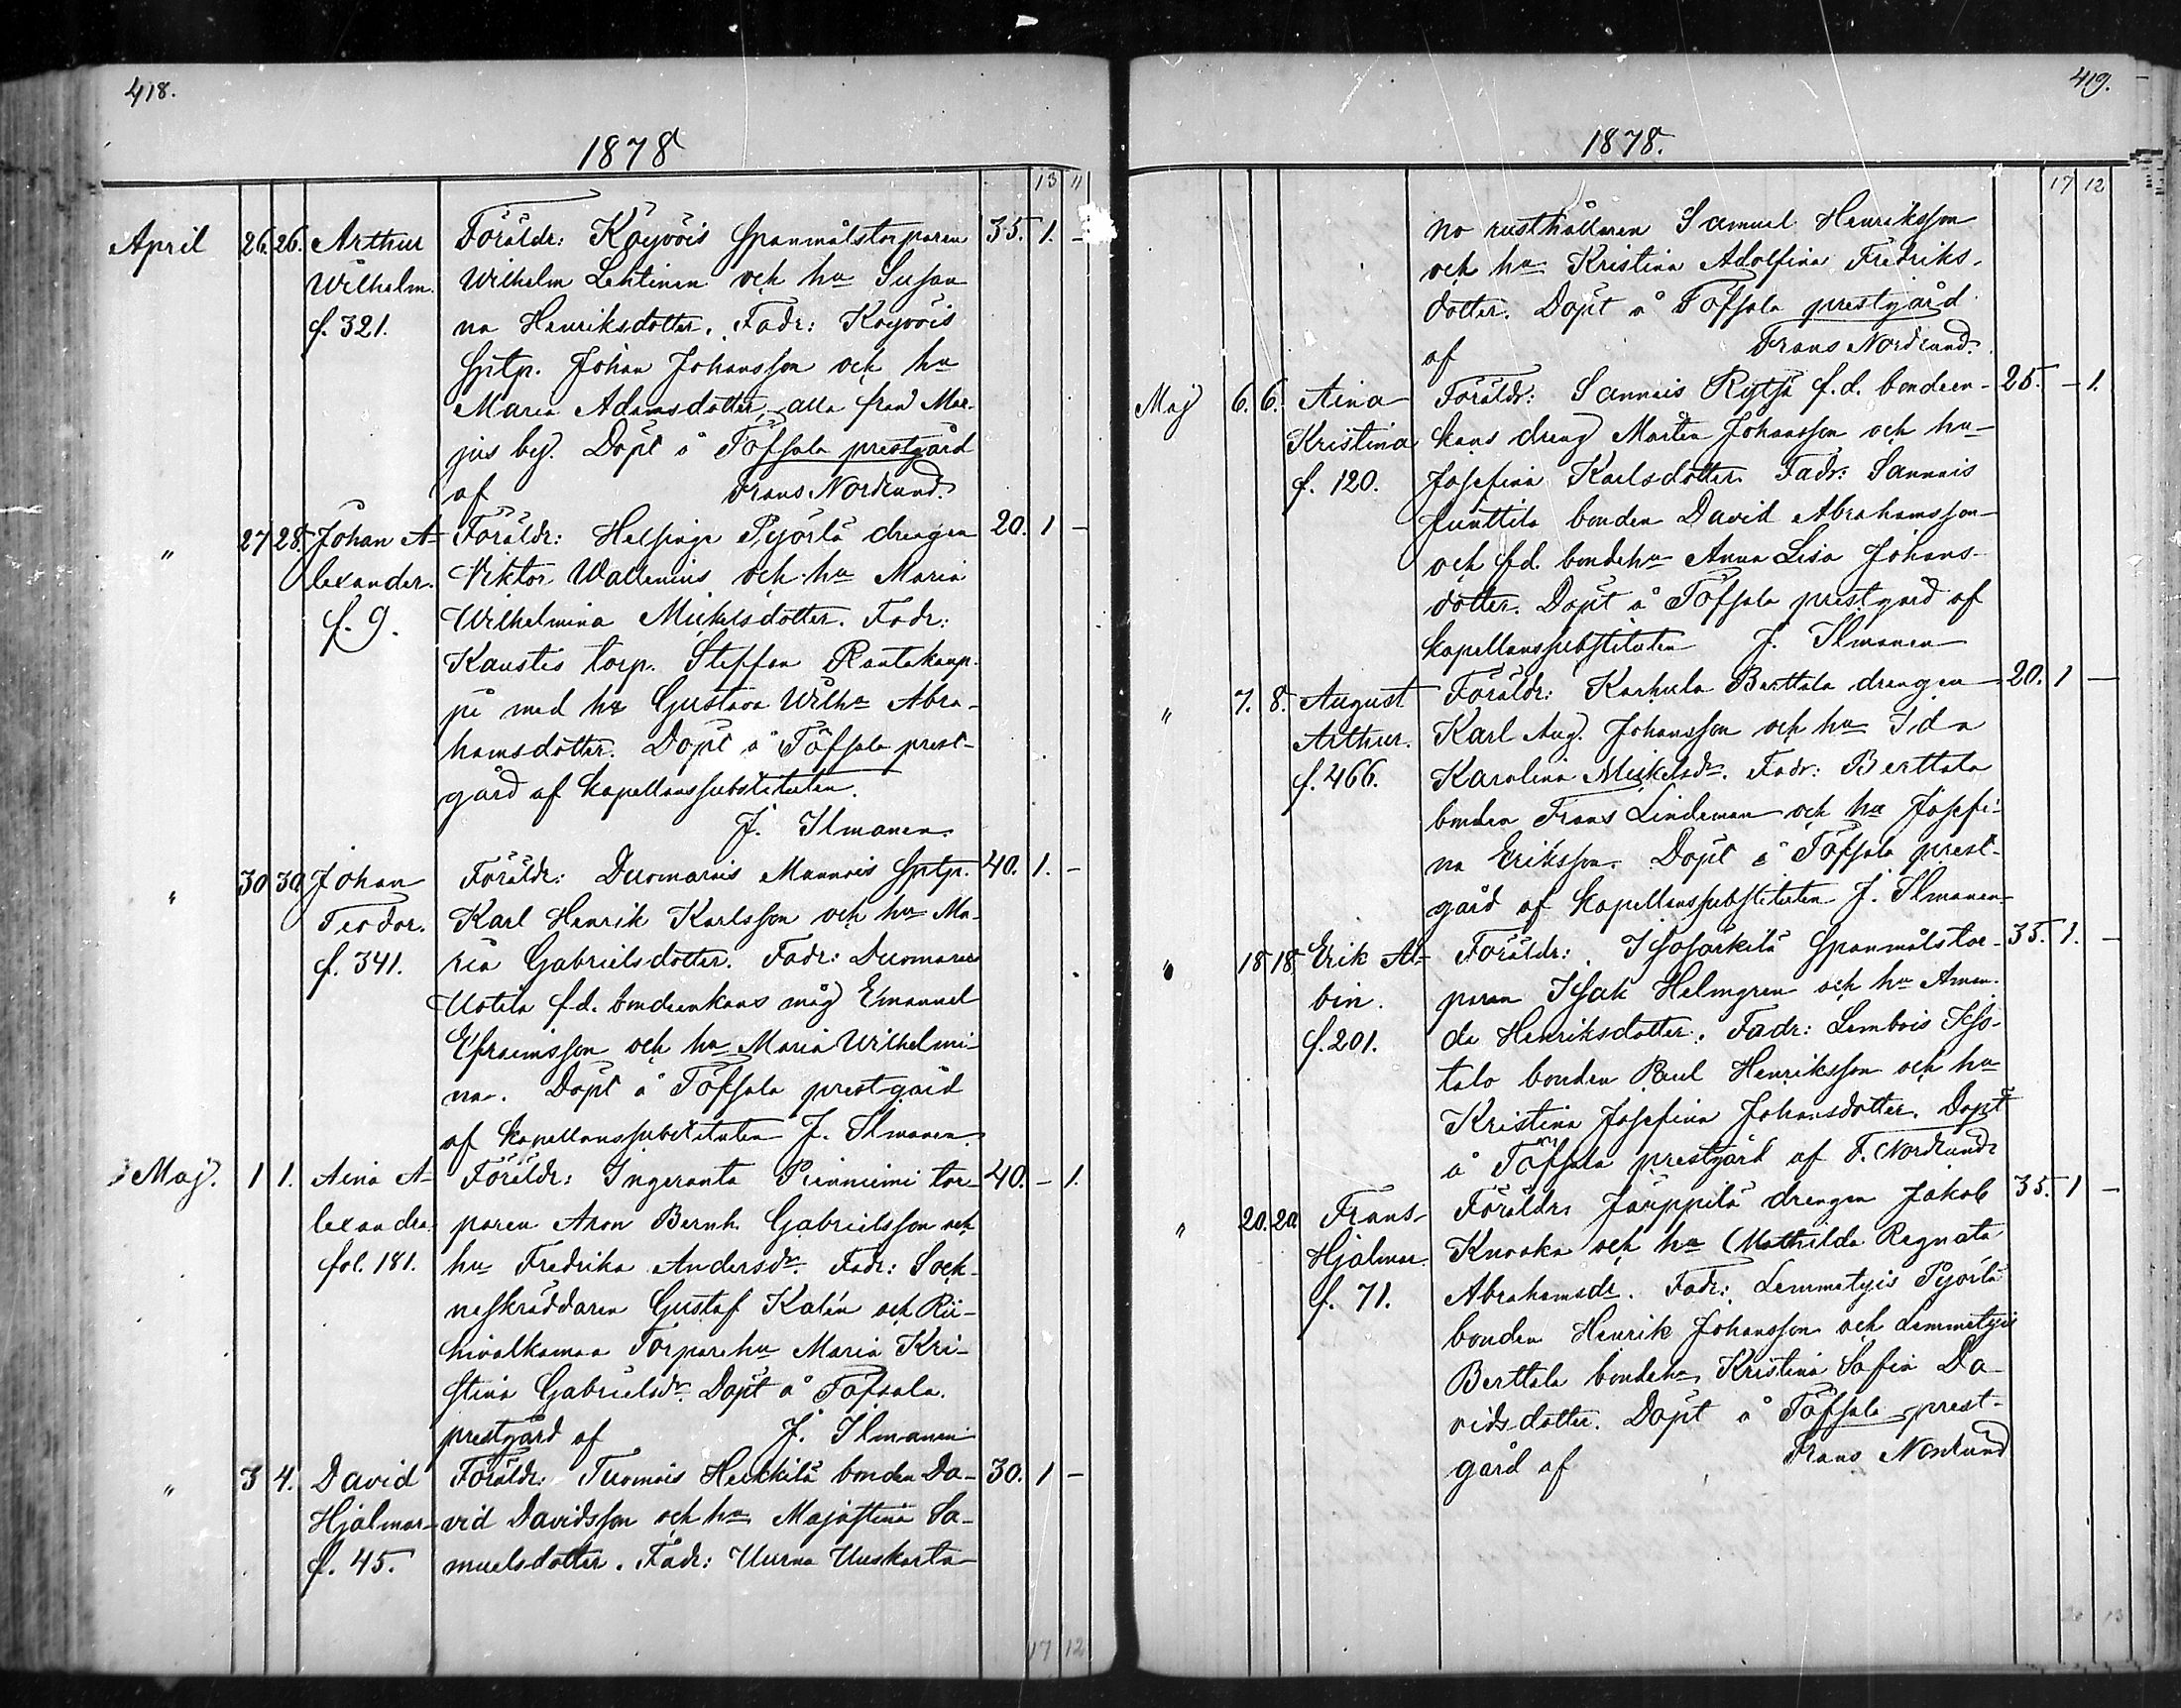 418.
1878
13 11
April 26. 26. Arthur Föräldr: Köyvöis Spanmålstorparen 35. 1. -
Wilhelm. Wilhelm Lehtinen och hu Susan
f. 321. na Henriksdotter. Fadr: Köyvöis
Sptp. Johan Johansson och hu
Maria Adamsdotter, alla från Mar-
jus by. Döpt å Töfsala prestgård
af Frans Nordlund.
" 27 28. Johan A- Föräldr: Helsinge Pyörlä drengen 20. 1 -
lexander. Viktor Wallenius och hu Maria
f. 9. Wilhelmina Mickelsdotter. Fadr:
Kaustis torp. Steffan Rantakaup-
pi med hu Gustava Wilha Abra-
hamsdotter. Döpt å Töfsala prest-
gård af kapellanssubstituten
J. Ilmanen.
" 30 30. Johan Föräldr: Duomarais Mannois Sptp. 40. 1. -
Teodor. Karl Henrik Karlsson och hu Ma-
f. 341. ria Gabrielsdotter. Fadr: Duomarais
Uotila f.d. bondeenkans måg Emanuel
Efraimsson och hu Maria Wilhelmi-
na. Döpt å Töfsala prestgård
af kapellanssubstituten J. Ilmanen.
Maj. 1 1. Aina A- Föräldr: Ingeranta Rinniemi tor- 40. - 1.
lexandra paren Aron Bernh. Gabrielsson och
fol. 181. hu Fredrika Andersdr. Fadr: Sock-
neskräddaren Gustaf Kalén och Rii-
hivalkamaa Torparehu Maria Kri-
stina Gabrielsdr. Döpt å Töfsala
prestgård af J. Ilmanen
" 3 4. David Föräldr: Tuomois Heikkilä bonden Da- 30. 1 -
Hjalmar vid Davidsson och hu Majastina Sa-
f. 45. muelsdotter. Fadr: Uurna Uuskarta-
17 12
419.
1878.
17 12
no rusthållaren Samuel Henriksson
och hu Kristina Adolfina Fredriks-
dotter. Döpt å Töfsala prestgård
af Frans Nordlund.
Maj 6. 6. Aina Föräldr: Sannais Rytsä f.d. bondeen- 25. - 1.
Kristina kans dreng Mårten Johansson och hu
f. 120. Josefina Karlsdotter. Fadr: Sannais
Junttila bonden David Abrahamsson
och f.d. bondehu Anna Lisa Johans-
dotter. Döpt å Töfsala prestgård af
kapellanssubstituten J. Ilmanen
" 7. 8. August Föräldr: Karhula Berttala drengen 20. 1 -
Arthur. Karl Aug. Johansson och hu Ida
f. 466. Karolina Mickelsdr. Fadr: Berttala
bonden Frans Lindeman och hu Josefi-
na Eriksson. Döpt å Töfsala prest-
gård af kapellanssubstituten J. Ilmanen
" 18 18. Erik Al- Föräldr: Isosärkilä Spanmålstor- 35. 1. -
bin. paren Isak Helmgren och hu Aman-
f. 201. da Henriksdotter. Fadr: Lembois Iso-
talo bonden Paul Henriksson och hu
Kristina Josefina Johansdotter. Döpt
å Töfsala prestgård af F. Nordlund
" 20. 20. Frans Föräldr: Jäuppilä drengen Jakob 35. 1 -
Hjalmar. Knaaka och hu Mathilda Regnata
f. 71. Abrahamsdr. Fadr: Lemmetyis Pyörlä
bonden Henrik Johansson och Lemmetyis
Berttala bondehu Kristina Sofia Da-
vidsdotter. Döpt å Töfsala prest-
gård af Frans Nordlund
20 13